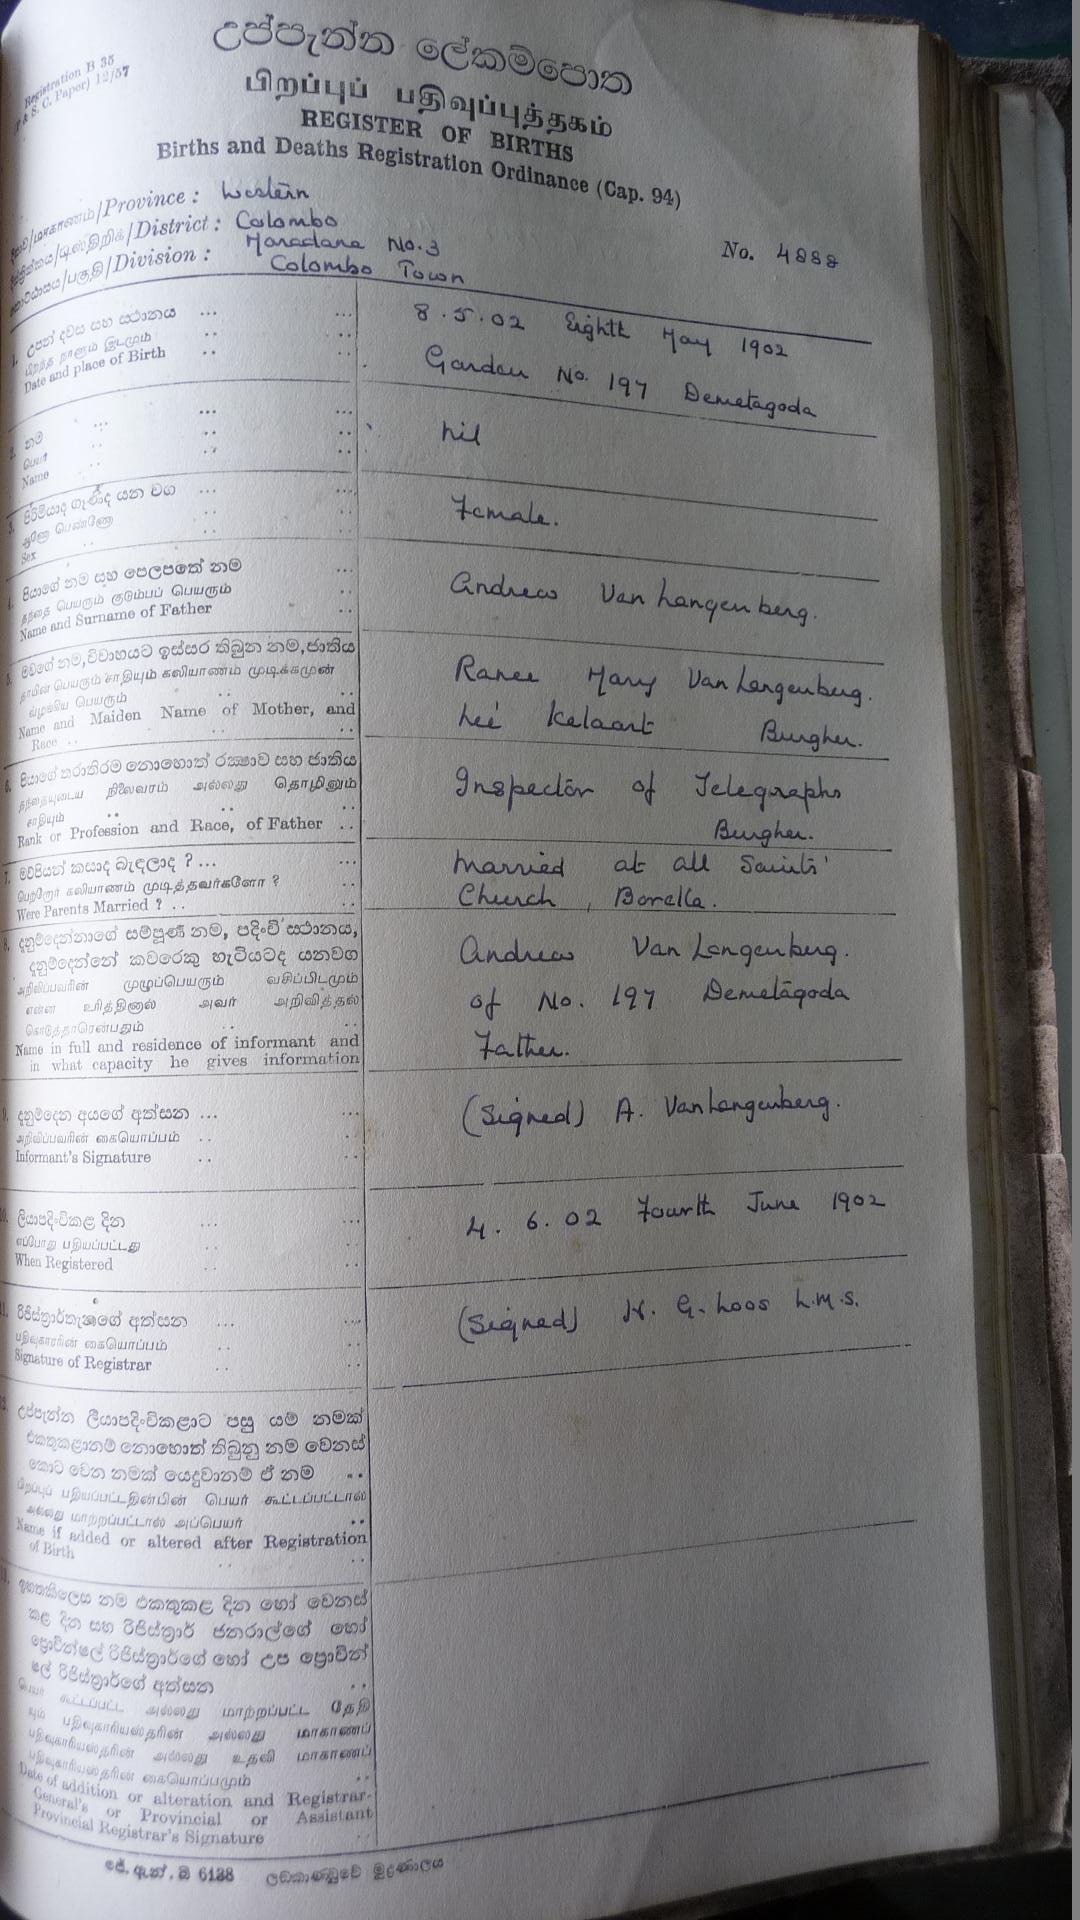 උප්පැන්න ලේකම්පොත
பிறப்புப் பதிவுப்புத்தகம்
REGISTER OF BIRTHS
Births and Deaths Registration Ordinance (Cap. 94)
Registration B 35
(F & S. C. Paper) 12/57
மாகாணம்/Province : Western
District : Colombo
Maradana No. 3
Division : Colombo Town
No. 4888
1. උපන් දවස සහ ස්ථානය ... ...
பிறந்த நாளும் இடமும் .. ..
Date and place of Birth .. ..
8.5.02 Eighth May 1902
Garden No. 197 Demetagoda
2. නම ... ...
பெயர் .. ..
Name .. ..
Nil
3. පිරිමියාද ගැණිද යන වග ... ...
ஆணோ பெண்ணோ .. ..
Sex .. ..
Female.
4. පියාගේ නම සහ පෙලපතේ නම ...
தந்தை பெயரும் குடும்பப் பெயரும் ..
Name and Surname of Father ..
Andrew Van Langenberg.
5. මවගේ නම, විවාහයට ඉස්සර තිබුන නම, ජාතිය
தாயின் பெயரும் சாதியும் கலியாணம் முடிக்கமுன்
வழங்கிய பெயரும் .. ..
Name and Maiden Name of Mother, and
Race .. .. ..
Ranee Mary Van Langenberg.
Neé Kelaart Burgher.
6. පියාගේ තරාතිරම නොහොත් රක්ෂාව සහ ජාතිය
தந்தையுடைய நிலைவரம் அல்லது தொழிலும்
சாதியும் .. ..
Rank or Profession and Race, of Father ..
Inspector of Telegraphs
Burgher.
7. මව්පියන් කසාද බැඳලාද ? ... ...
பெற்றோர் கலியாணம் முடித்தவர்களோ ? ..
Were Parents Married ? .. ..
Married at all Saints'
Church, Borella.
8. දැනුම්දෙන්නාගේ සම්පූර්ණ නම, පදිංචි ස්ථානය,
දැනුම්දෙන්නේ කවරෙකු හැටියටද යනවග
அறிவிப்பவரின் முழுப்பெயரும் வசிப்பிடமும்
என்ன உரித்தினால் அவர் அறிவித்தல்
கொடுத்தாரென்பதும் .. ..
Name in full and residence of informant and
in what capacity he gives information
Andrew Van Langenberg.
of No. 197 Demetagoda
Father.
9. දැනුම්දෙන අයගේ අත්සන ... ...
அறிவிப்பவரின் கையொப்பம் .. ..
Informant's Signature .. ..
(Signed) A. Van Langenberg.
10. ලියාපදිංචිකළ දින ... ...
எப்போது பதியப்பட்டது .. ..
When Registered .. ..
4. 6. 02 Fourth June 1902
11. රිජිස්ත්‍රාර්තැනගේ අත්සන ... ...
பதிவுகாரரின் கையொப்பம் .. ..
Signature of Registrar .. ..
(Signed) H. G. Loos L.M.S.
12. උප්පැන්න ලියාපදිංචිකළාට පසු යම් නමක්
එකතුකළානම් නොහොත් තිබුනු නම වෙනස්
කොට වෙන නමක් යෙදුවානම් ඒ නම ..
பிறப்புப் பதியப்பட்டதின்பின் பெயர் கூட்டப்பட்டால்
அல்லது மாற்றப்பட்டால் அப்பெயர் ..
Name if added or altered after Registration
of Birth .. ..
13. ඉහතකිලෙස නම එකතුකළ දින හෝ වෙනස්
කළ දින සහ රිජිස්ත්‍රාර් ජනරාල්ගේ හෝ
ප්‍රොවින්ෂල් රිජිස්ත්‍රාර්ගේ හෝ උප ප්‍රොවින්
ෂල් රිජිස්ත්‍රාර්ගේ අත්සන ..
பெயர் கூட்டப்பட்ட அல்லது மாற்றப்பட்ட தேதி
யும் பதிவுகாரியஸ்தரின் அல்லது மாகாணப்
பதிவுகாரியஸ்தரின் அல்லது உதவி மாகாணப்
பதிவுகாரியஸ்தரின் கையொப்பமும் ..
Date of addition or alteration and Registrar-
General's or Provincial or Assistant
Provincial Registrar's Signature ..
ජේ. ඇන්. ඕ 6138 ලඞකාණ්ඩුවේ මුද්‍රණාලය